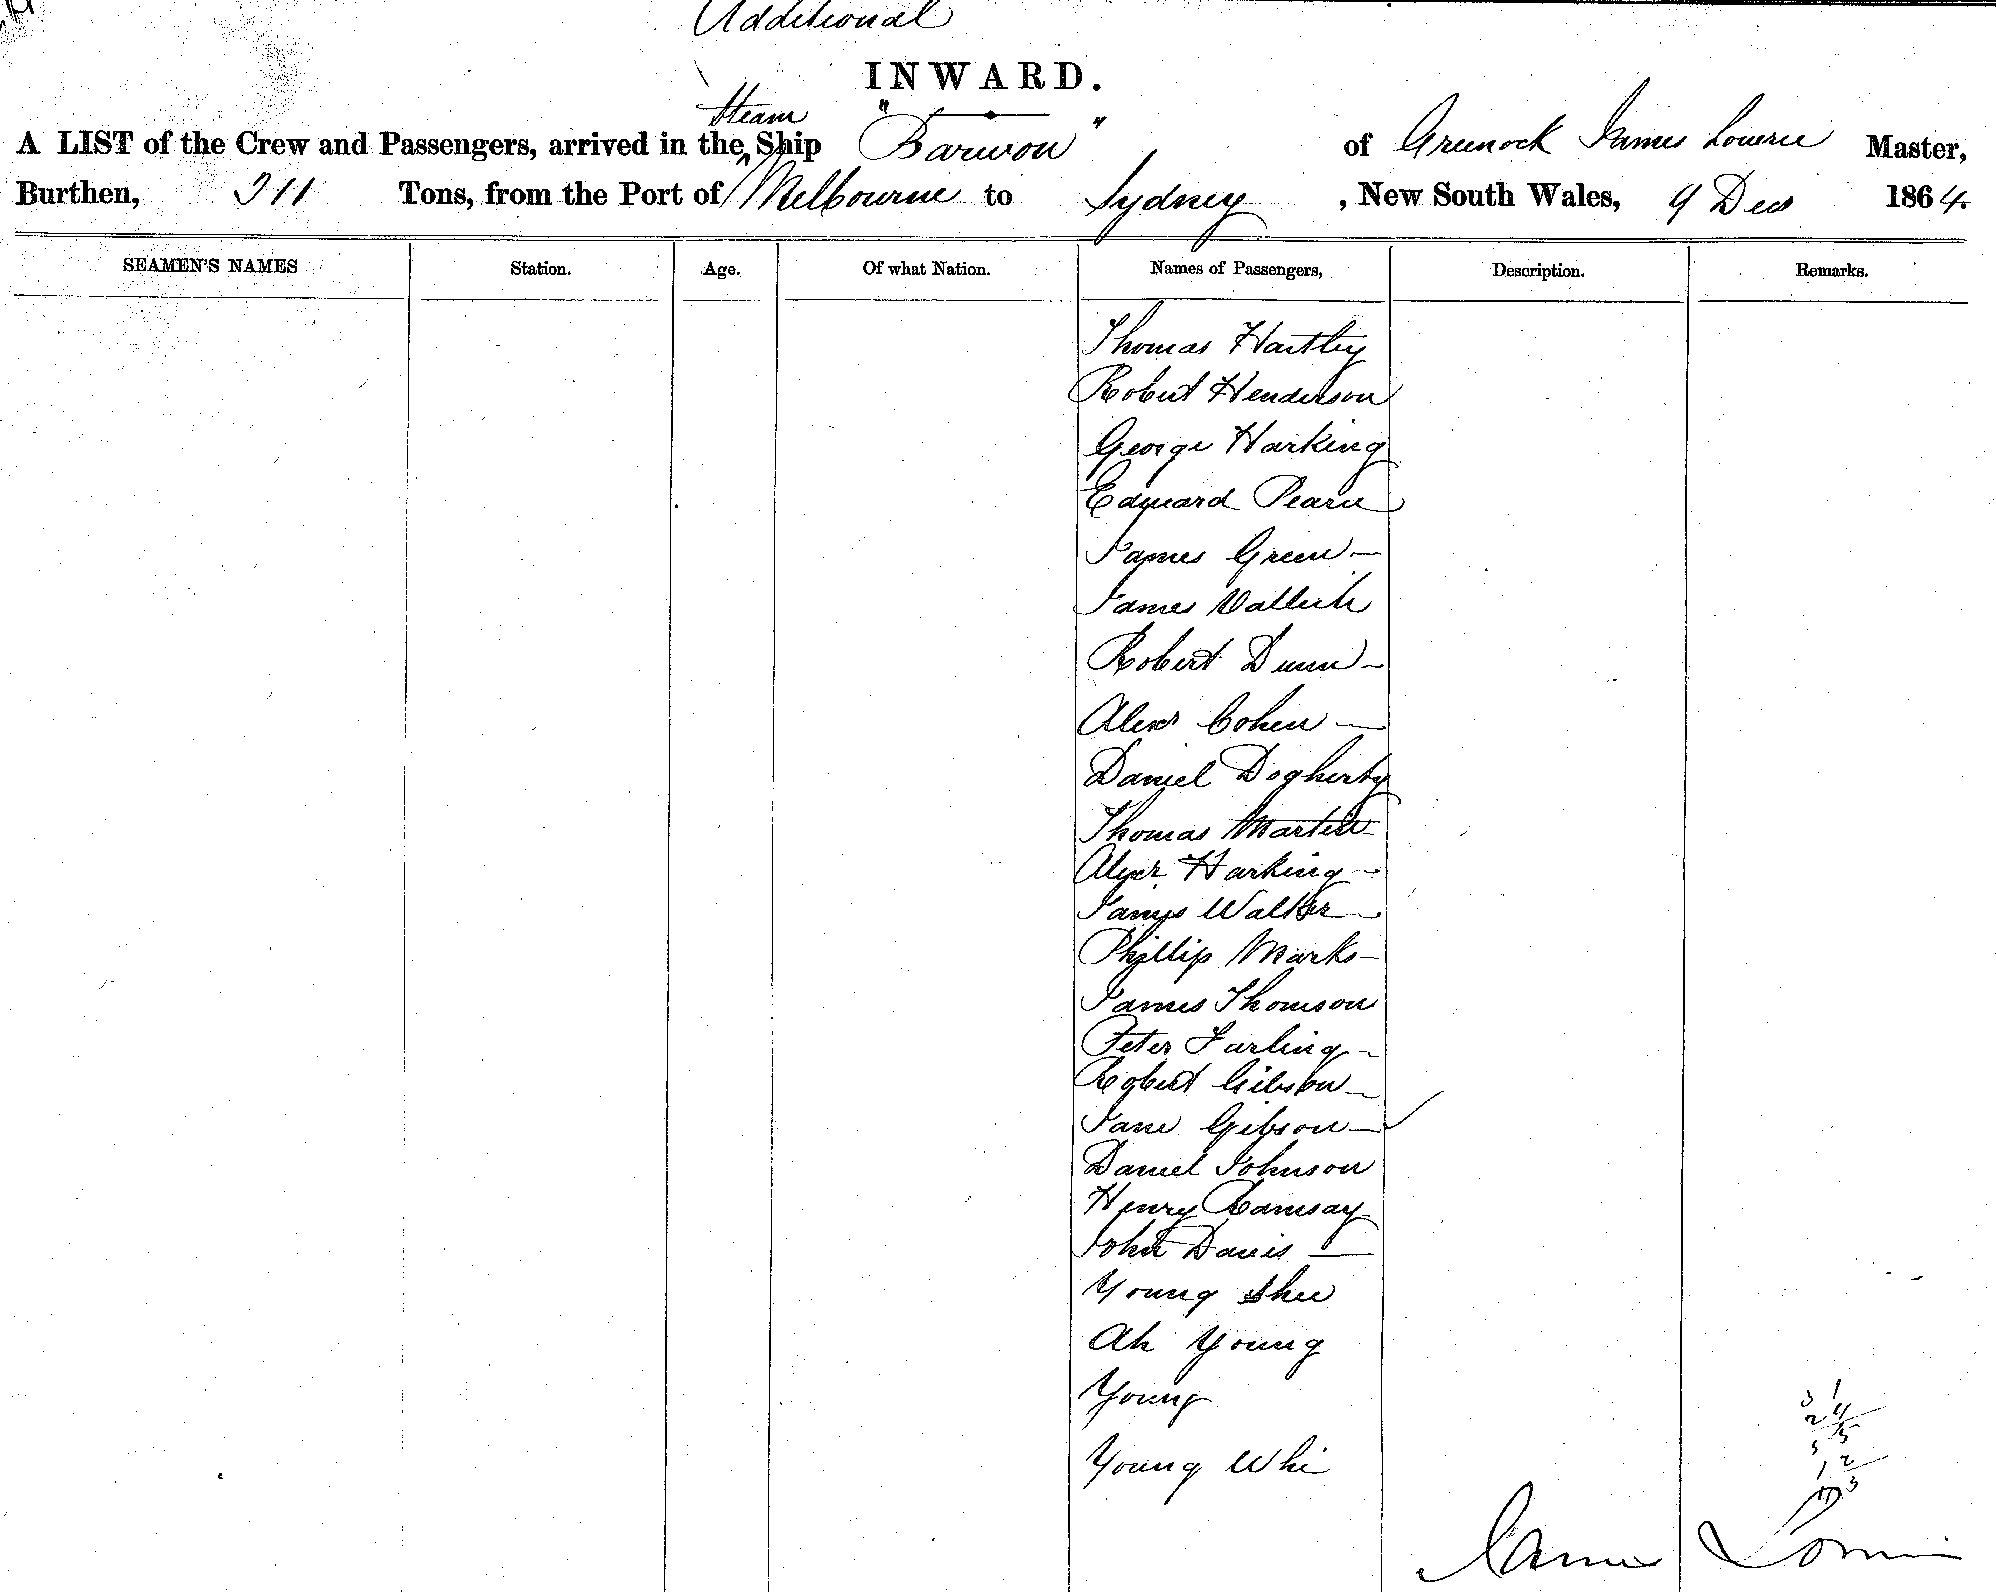 Additional
INWARD.
Steam
A LIST of the Crew and Passengers, arrived in the ^ Ship "Barwon" of Greenock James Lowrie Master,
Burthen, 311 Tons, from the Port of Melbourne to Sydney, New South Wales, 9 Dec 1864.
SEAMEN'S NAMES Station. Age. Of what Nation. Names of Passengers, Description. Remarks.
Thomas Hartley
Robert Henderson
George Harking
Edward Pearce
James Green —
James
Robert Dunn —
Alexr Cohen —
Daniel Dogherty
Thomas Martin
Alexr Harking —
James Walker —
Phillip Marks —
James Thomson
Peter
Robert Gibson —
Jane Gibson —
Daniel Johnson
Henry Ramsay
John Davis —
Young Shee
Ah Young
Young
Young Whi
James Lowrie